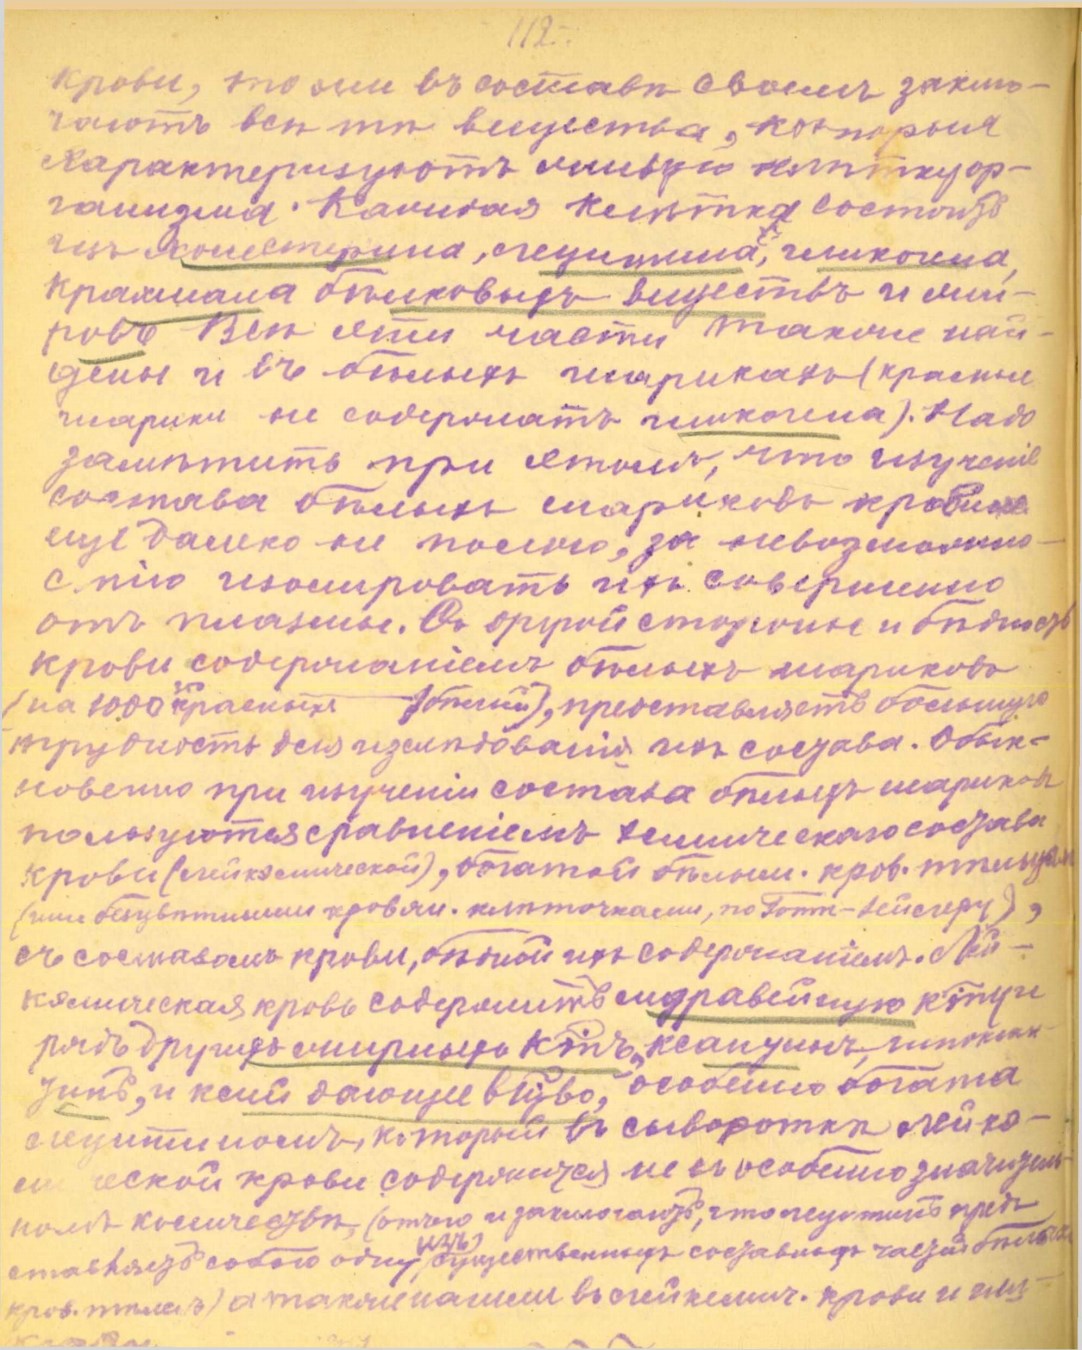 112.
крови, то они въ составѣ своемъ заклю-
чаютъ всѣ тѣ вещества, которыя
характеризуютъ живую клѣтку ор-
ганизма. Каждая клѣтка состоитъ
изъ холестерина, лецитина, гликогена,
крахмала бѣлковыхъ веществъ и жи-
ровъ Всѣ эти части также най-
дены и въ бѣлыхъ шарикахъ (красные
шарики не содержатъ гликогена). Надо
замѣтить при этомъ, что изученіе
состава бѣлыхъ шариковъ крови
еще далеко не полно, за невозможно-
стію изолировать ихъ совершенно
отъ плазмы. Съ другой стороны и бѣдность
крови содержаніемъ бѣлыхъ шариковъ
(на 1000 красныхъ 1 бѣлый), представляетъ большую
трудность для изслѣдованія ихъ состава. Обык-
новенно при изученіи состава бѣлыхъ шариковъ
пользуются сравненіемъ химическаго состава
крови (лейкэмической), богатой бѣлым. кров. тѣльцами
(или безцвѣтными кровян. клѣточками, по Гопп-Зейлеру),
съ составомъ крови, бѣдной ихъ содержаніемъ. Лей-
кэмическая кровь содержитъ муравейную к-ту и
рядъ другихъ жирныхъ к-тъ, ксантинъ, гипоксан-
тинъ, и клей дающее в-тво, особенно богата
лецитиномъ, который въ сывороткѣ лейкэ-
мической крови содержится не въ особенно значитель-
номъ количествѣ, (отчего и заключаютъ, что лецитинъ пред-
ставляетъ собою одну изъ существенныхъ составныхъ частей бѣлыхъ
кров. тѣлецъ) а также нашли въ лейкемич. крови и гли-